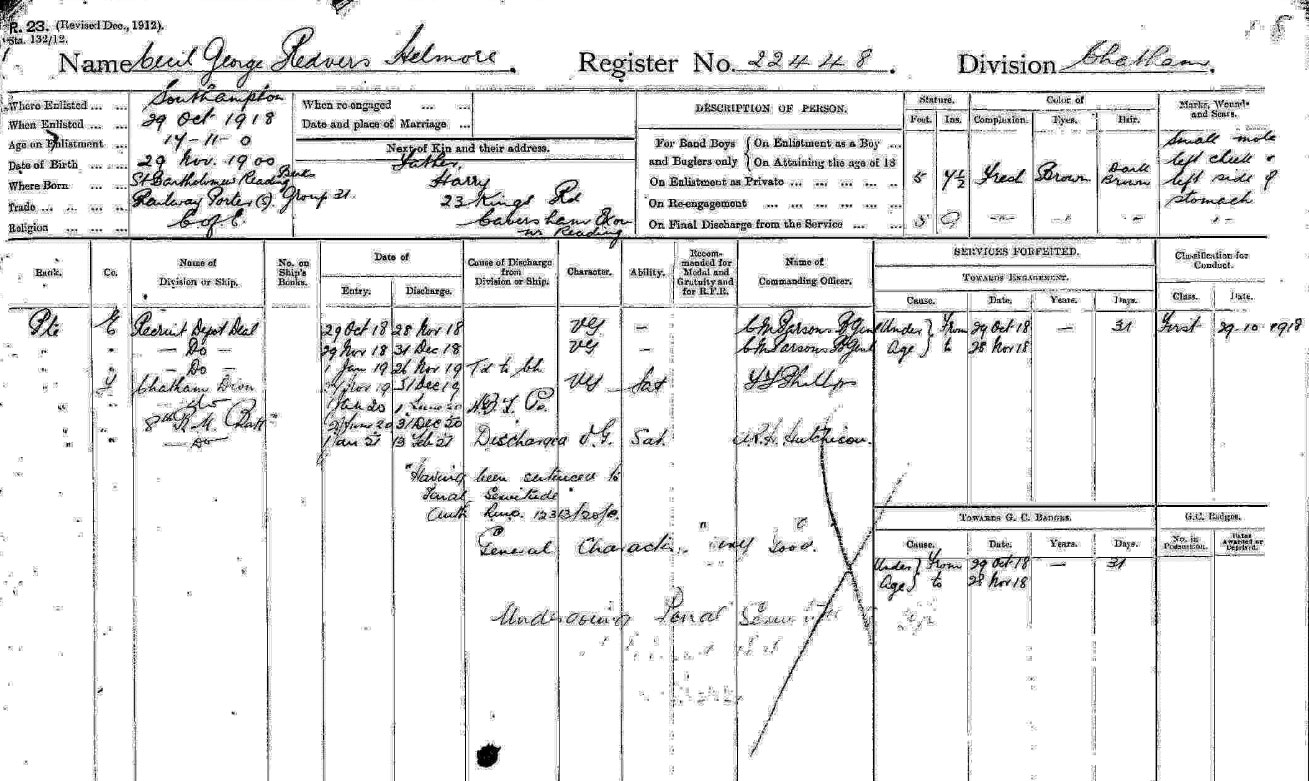 R. 23. (Revised Dec., 1912).
Sta. 132/12.
Name Cecil George Redvers Helmore. Register No. 22448. Division Chatham.
Where Enlisted ... ... Southampton
When Enlisted ... ... 29 Oct 1918
Age on Enlistment ... 17-11-0
Date of Birth ... ... 29 Nov. 1900
Where Born ... ... St Bartholomew Reading Berks
Trade ... ... Railway Porter (S). Group 31.
Religion ... ... C of E.
When re-engaged ... ...
Date and place of Marriage ...
Next of Kin and their address.
Father.
Harry
23 Kings Rd
Caversham Oxon
nr Reading
DESCRIPTION OF PERSON.
For Band Boys and Buglers only { On Enlistment as a Boy ...
On Attaining the age of 18
On Enlistment as Private ... ... ... ... ...
On Re-engagement ... ... ... ... ...
On Final Discharge from the Service ... ...
Stature. Color of Marks, Wounds and Scars.
Feet. Ins. Complexion. Eyes. Hair.
5 4½ Fresh Brown Dark Brown
5 9 - - -
Small mole
left cheek &
left side of
stomach
Rank. Co. Name of Division or Ship. No. on Ship's Books. Date of Entry. Discharge. Cause of Discharge from Division or Ship. Character. Ability. Recommended for Medal and Gratuity and for R.F.R. Name of Commanding Officer.
Pte E Recruit Depot Deal 29 Oct 18 28 Nov 18 VG - C M Parsons
" " - Do - 29 Nov 18 31 Dec 18 VG - C M Parsons
" - Do - 1 Jan 19 26 Nov 19 Td to Ch
" Chatham Divn 27 Nov 19 31 Dec 19 VG Sat Phillips
" - do - 1 Jan 20 1 June 20
" 8th R.M. Batt 2 June 20 31 Dec 20
" - Do - 1 Jan 21 13 Feb 21 Discharged V.G. Sat. Hutchison.
"Having been sentenced to
Penal Servitude"
Auth
General Character. "Very Good."
Undergoing Penal Servitude
SERVICES FORFEITED.
TOWARDS ENGAGEMENT.
Cause. Date. Years. Days.
Under } From 29 Oct 18 - 31
Age } to 28 Nov 18
Classification for Conduct.
Class. Date.
First 29-10-1918
TOWARDS G. C. BADGES. G.C. Badges.
Cause. Date. Years. Days. No. in Possession. Dates Awarded or Deprived.
Under } From 29 Oct 18 - 31
Age } to 28 Nov 18